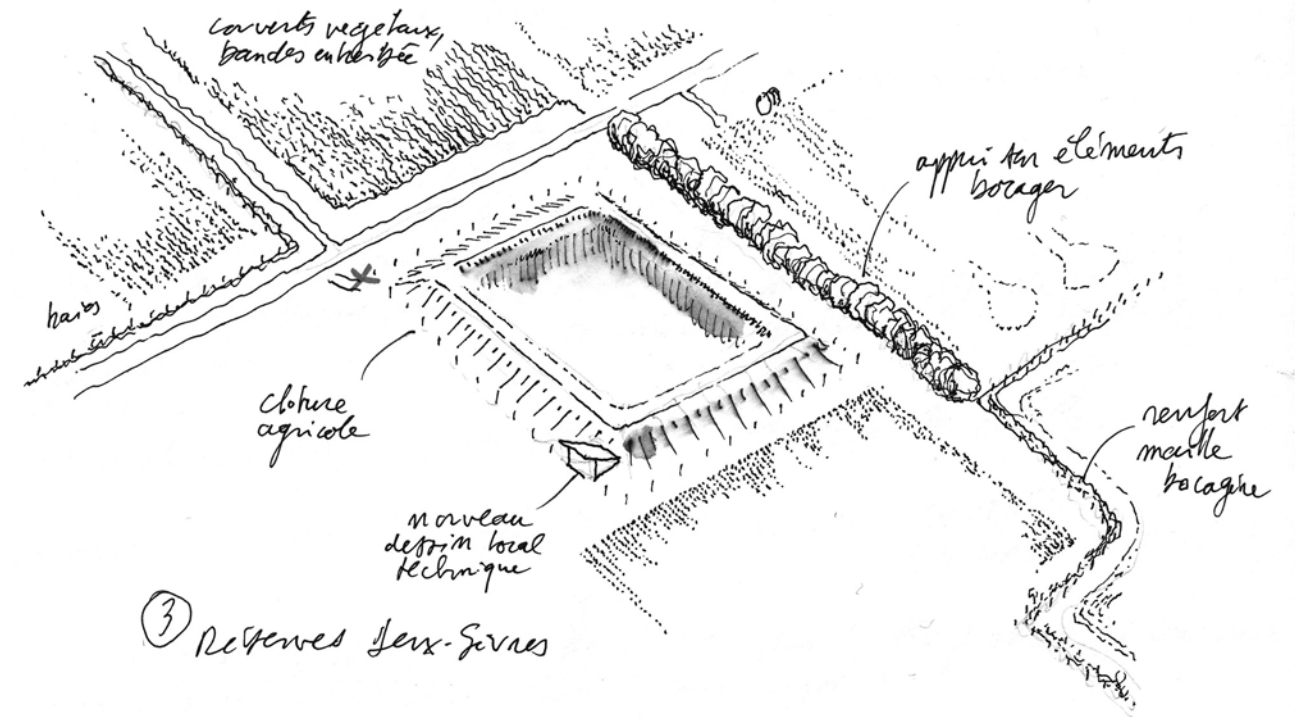 couverts vegetaux,
bandes enherbée
appui sur éléments
bocager
haies
clôture
agricole
renfort
maille
bocagère
nouveau
dessin local
technique
3 Réserves Deux-Sèvres